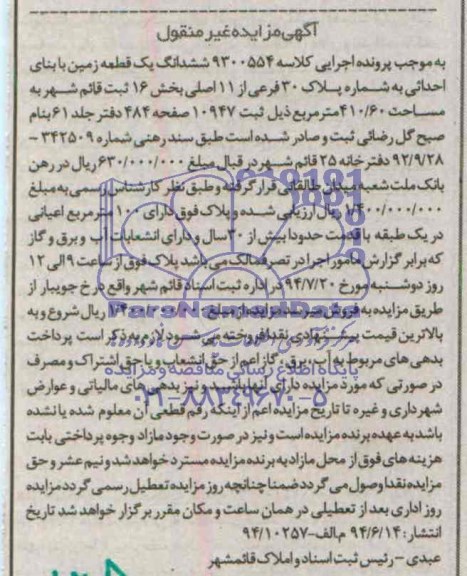 آگهی مزایده غیر منقول
به موجب پرونده اجرایی کلاسه ۹۳۰۰۵۵۴ ششدانگ یک قطعه زمین با بنای
احداثی به شماره پلاک ۳۰ فرعی از ۱۱ اصلی بخش ۱۶ ثبت قائم شهر به
مساحت ۴۱۰/۶۰ مترمربع ذیل ثبت ۱۰۹۴۷ صفحه ۴۸۴ دفتر جلد ۶۱ بنام
صبح گل رضائی ثبت و صادر شده است طبق سند رهنی شماره ۳۴۲۵۰۹ -
۹۲/۹/۲۸ دفترخانه ۲۵ قائم شهر در قبال مبلغ ۶۳۰/۰۰۰/۰۰۰ ریال در رهن
بانک ملت شعبه میدان طالقانی قرار گرفته و طبق نظر کارشناس رسمی به مبلغ
۱/۴۰۰/۰۰۰/۰۰۰ ریال ارزیابی شده و پلاک فوق دارای ۱۰۰ مترمربع اعیانی
در یک طبقه با قدمت حدودا بیش از ۳۰ سال و دارای انشعابات آب و برق و گاز
که برابر گزارش مامور اجرا در تصرف مالک می باشد پلاک فوق از ساعت ۹ الی ۱۲
روز دوشنبه مورخ ۹۴/۷/۲۰ در اداره ثبت اسناد قائم شهر واقع در خ جویبار از
طریق مزایده به فروش میرسد مزایده از مبلغ ۱/۴۰۰/۰۰۰/۰۰۰ ریال شروع و به
بالاترین قیمت پیشنهادی نقدا فروخته می شود لازم به ذکر است پرداخت
بدهی های مربوط به آب، برق، گاز اعم از حق انشعاب و یا حق اشتراک و مصرف
در صورتی که مورد مزایده دارای آنها باشد و نیز بدهی های مالیاتی و عوارض
شهرداری و غیره تا تاریخ مزایده اعم از اینکه رقم قطعی آن معلوم شده یا نشده
باشد به عهده برنده مزایده است و نیز در صورت وجود مازاد وجوه پرداختی بابت
هزینه های فوق از محل مازاد به برنده مزایده مسترد خواهد شد و نیم عشر و حق
مزایده نقدا وصول می گردد ضمنا چنانچه روز مزایده تعطیل رسمی گردد مزایده
روز اداری بعد از تعطیلی در همان ساعت و مکان مقرر برگزار خواهد شد تاریخ
انتشار: ۹۴/۶/۱۴ م الف-۹۴/۱۰۲۵۷
عبدی - رئیس ثبت اسناد و املاک قائمشهر
پایگاه اطلاع رسانی مناقصه و مزایده
۰۲۱-۸۸۳۴۹۶۷۰-۵